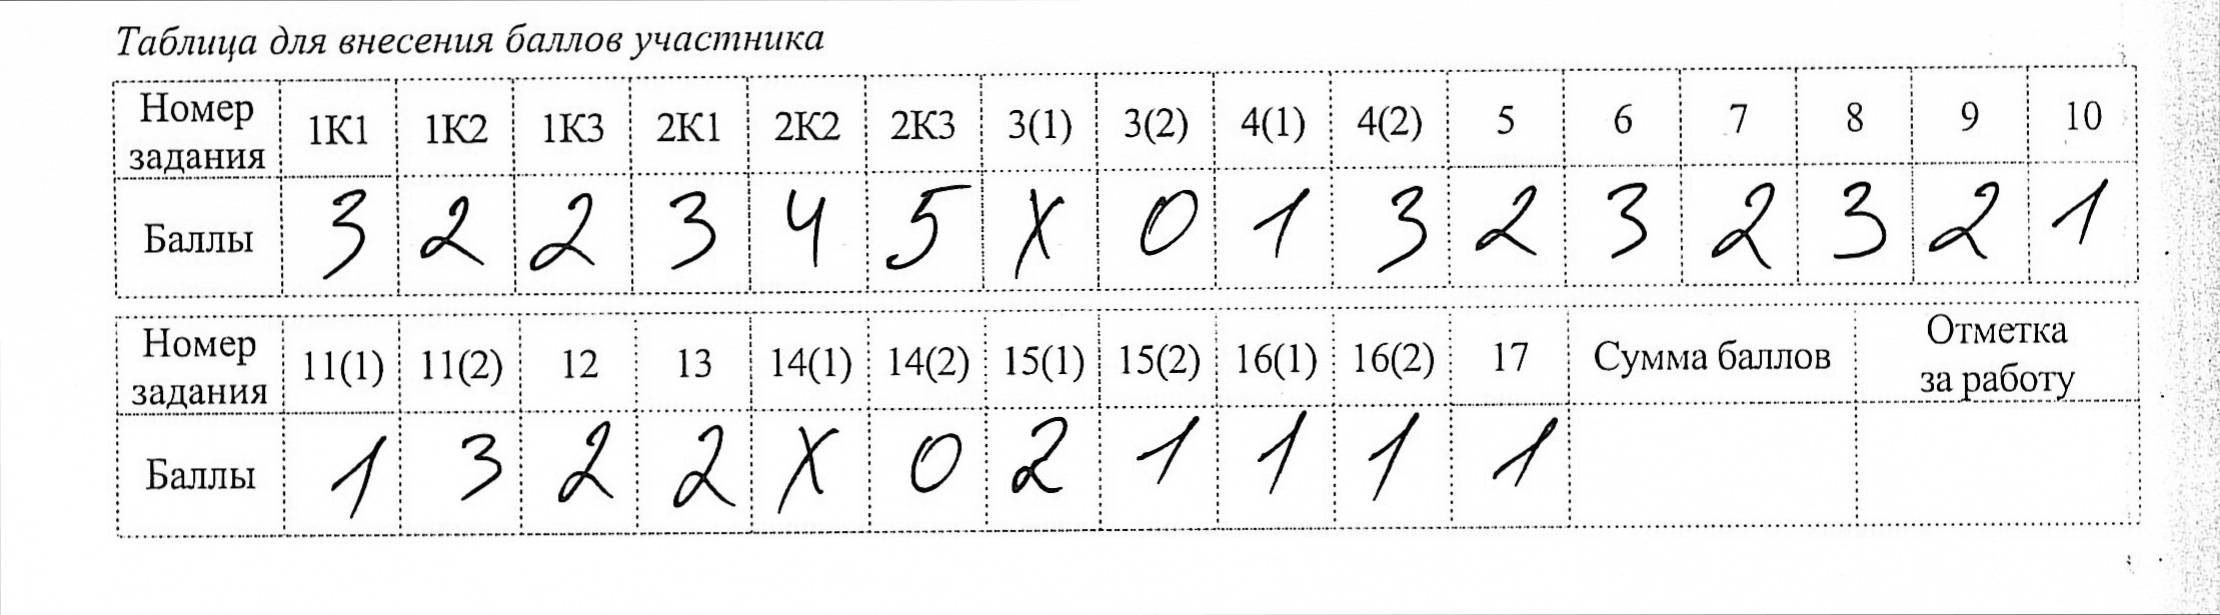 Таблица для внесения баллов участника
Номер задания 1К1 1К2 1К3 2К1 2К2 2К3 3(1) 3(2) 4(1) 4(2) 5 6 7 8 9 10
Баллы 3 2 2 3 4 5 X 0 1 3 2 3 2 3 2 1
Номер задания 11(1) 11(2) 12 13 14(1) 14(2) 15(1) 15(2) 16(1) 16(2) 17 Сумма баллов Отметка за работу
Баллы 1 3 2 2 X 0 2 1 1 1 1